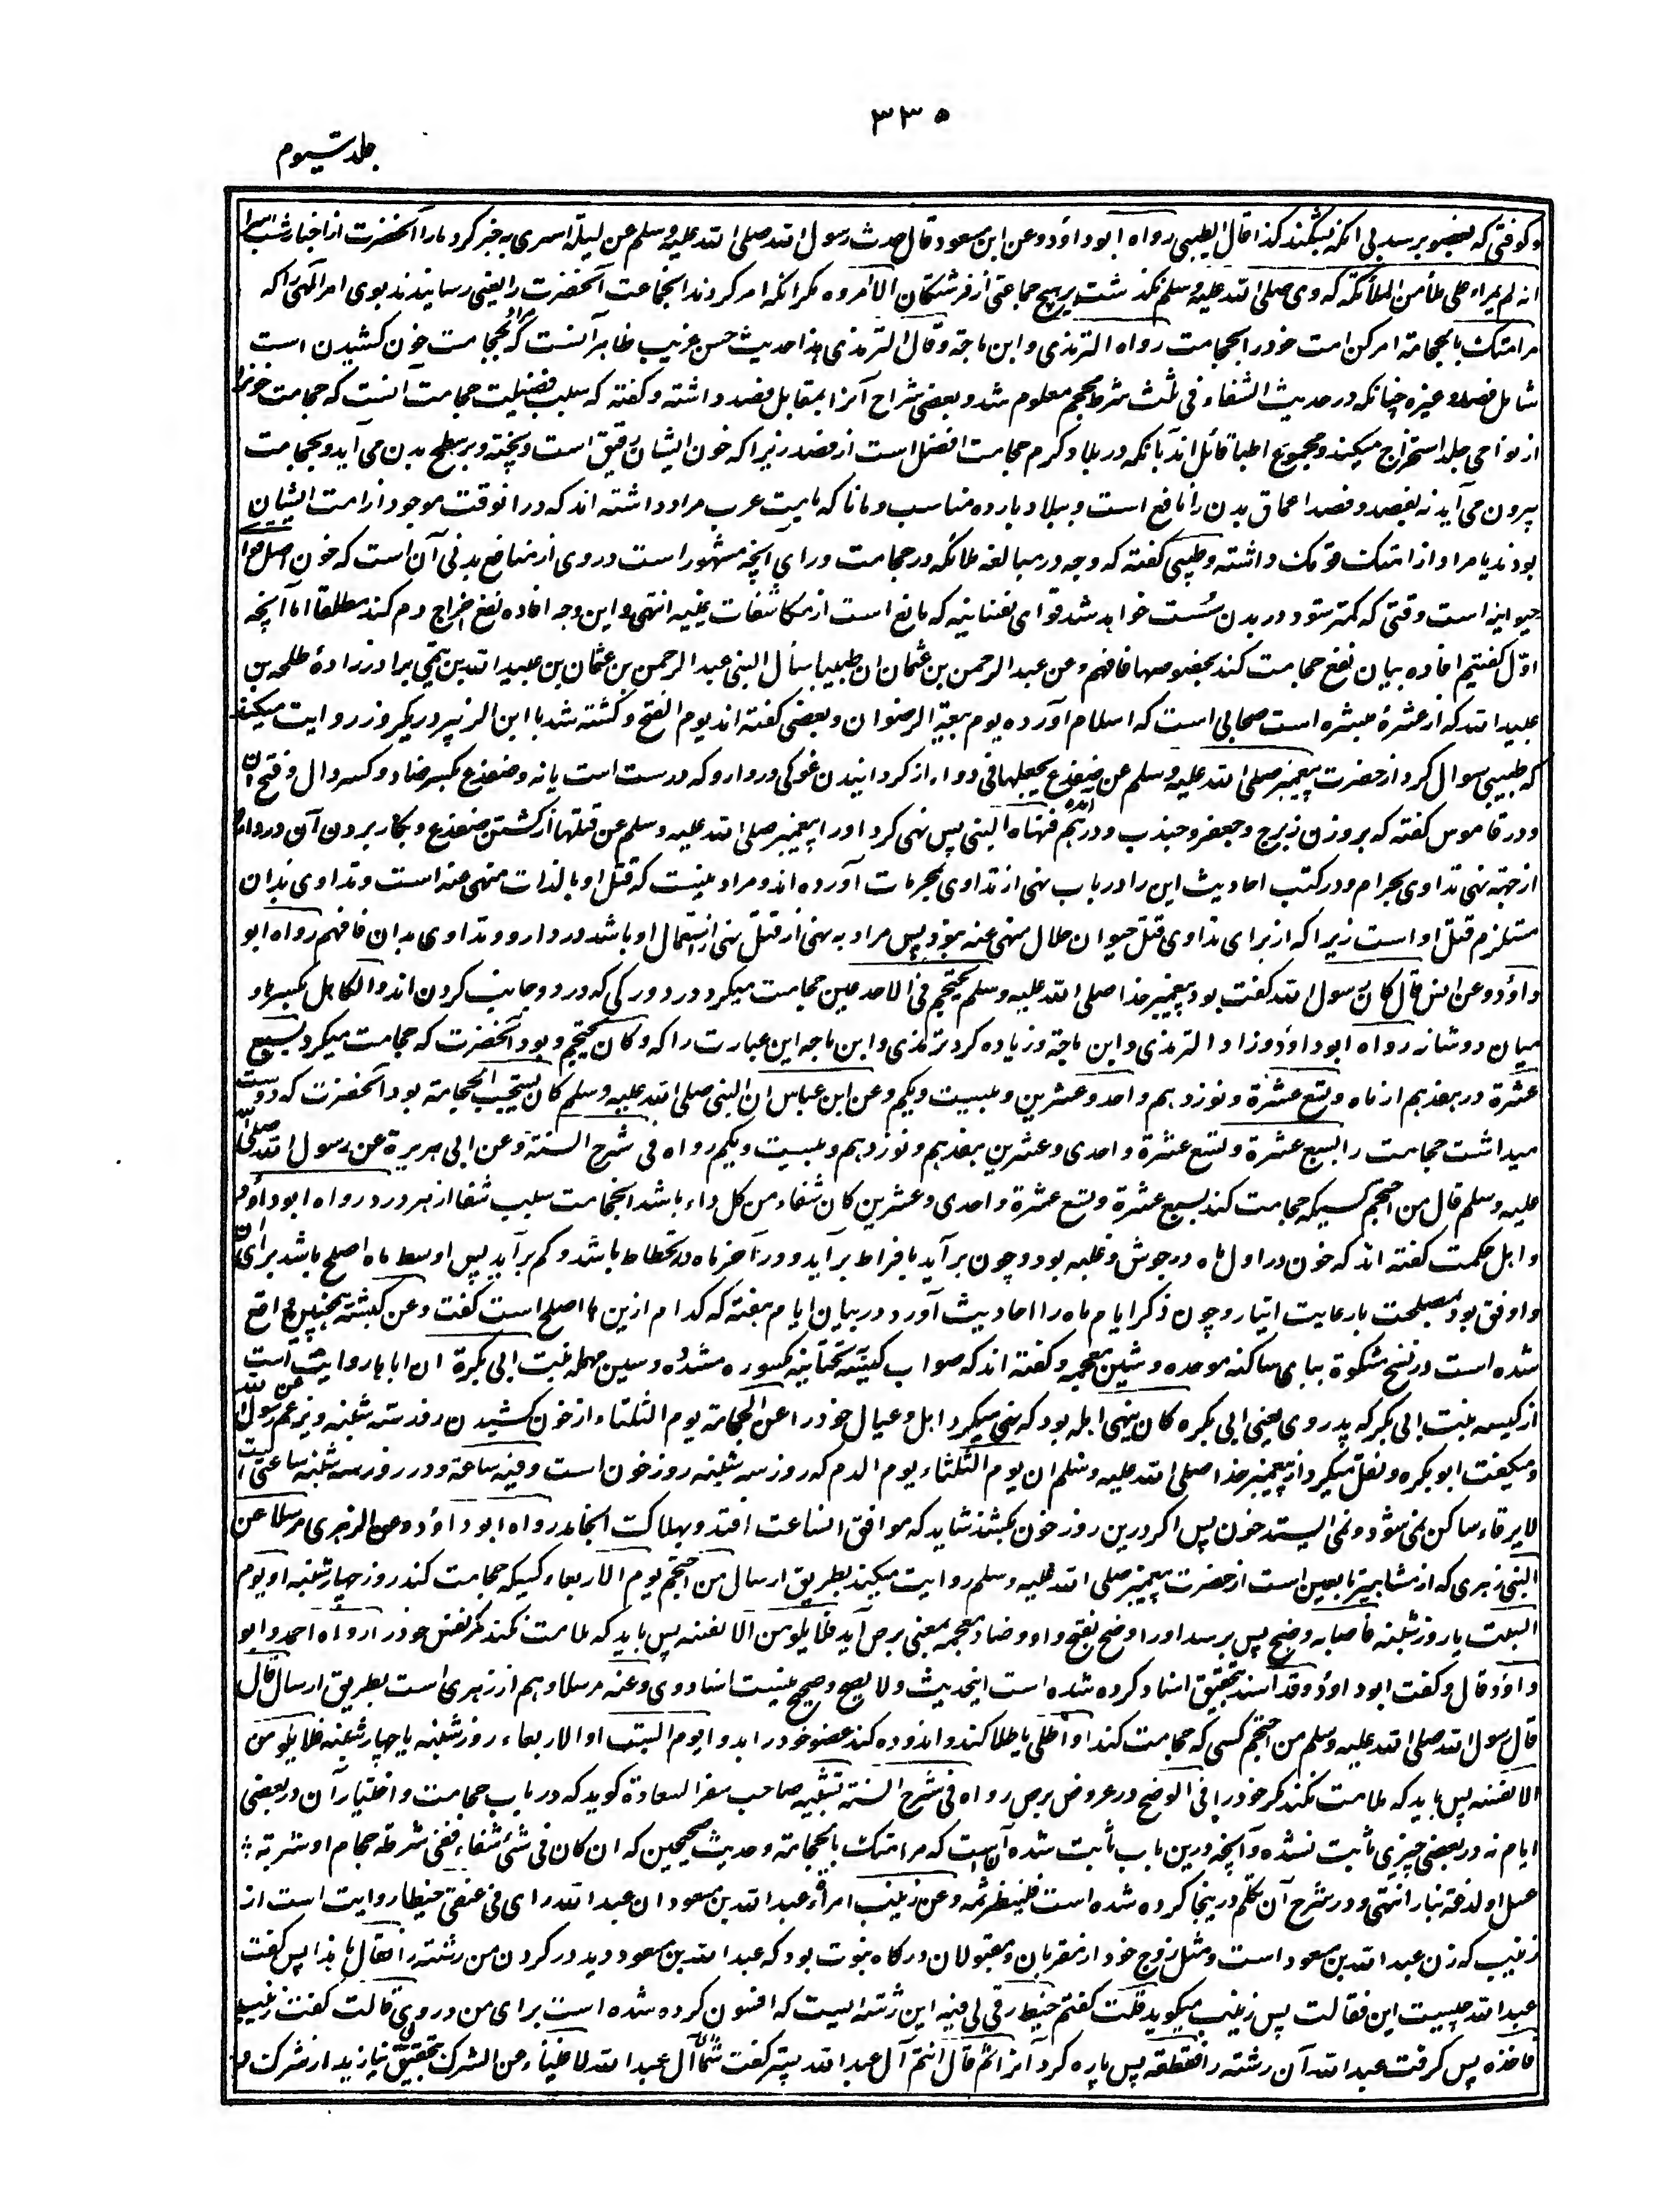 ۳۳۵
جلد سیوم
وکوفتی که بعضو برسد بی آنکه بشکند کذا قال الطیبی رواه ابو داؤد وعن ابن مسعود قال حدث رسول الله صلی الله علیه وسلم عن لیلة اسری به خبر کرد مارا آنحضرت از اخبار شب اسرا
انه لم یمر علی ملأ من الملائکة که وی صلی الله علیه وسلم نگذشت بر هیچ جماعتی از فرشتگان الا امروه مگر آنکه امر کردند آنجماعت آنحضرت را یعنی رسانیدند بوی امر الهی را که
مر امتک بالحجامة امر کن امت خود را بحجامت رواه الترمذی وابن ماجة وقال الترمذی هذا حدیث حسن غریب ظاهر آنست که مراد بحجامت خون کشیدن است
شامل فصد وغیره چنانکه در حدیث الشفاء فی ثلث شرطة محجم معلوم شد وبعضی شراح آنرا بمقابل فصد داشته وگفته که سبب فضیلت حجامت آنست که حجامت خون را
از نواحی جلد استخراج میکند ومجموع اطبا قائل اند بآنکه در بلاد گرم حجامت افضل است از فصد زیرا که خون ایشان رقیق است وپخته وبر سطح بدن می آید وبحجامت
بیرون می آید نه بفصد وفصد اعماق بدن را نافع است وببلاد بارده مناسب ومانا که بامت عرب مراد داشته اند که در آنوقت موجود از امت ایشان
بودند یا مراد از امتک قومک داشته وطیبی گفته که وجه در مبالغه ملائکه در حجامت ورای آنچه مشهور است در وی از منافع بدنی آن است که خون اصل قوا
حیوانیه است وقتی که کمتر شود در بدن سست خواهد شد قوای نفسانیه که مانع است از مکاشفات غیبیه انتهی واین وجه افاده نفع اخراج دم کند مطلقا اما آنچه
اول گفتیم افاده بیان نفع حجامت کند بخصوصها فافهم وعن عبد الرحمن بن عثمان ان طبیبا سأل النبی عبد الرحمن بن عثمان بن عبید الله بن تیمی برادر زادهٔ طلحه بن
عبید الله که از عشرهٔ مبشره است صحابی است که اسلام آورده یوم بیعة الرضوان وبعضی گفته اند یوم الفتح وکشته شد با ابن الزبیر در یکروز روایت میکند
که طبیبی سوال کرد از حضرت پیغمبر صلی الله علیه وسلم عن ضفدع یجعلها فی دواء از گردانیدن غوکی در دارو که درست است یا نه وضفدع بکسر ضاد وکسر دال وفتح آن
ودر قاموس گفته که بروزن زبرج وجعفر وجندب ودرهم فنهاه النبی پس نهی کرد اورا پیغمبر صلی الله علیه وسلم عن قتلها از کشتن ضفدع وبکار بردن آن در دوا
از جهة نهی تداوی بحرام ودر کتب احادیث این را در باب نهی از تداوی بمحرمات آورده اند ومراد نیست که قتل او بالذات منهی عنه است وتداوی بدان
مستلزم قتل او است زیرا که از برای تداوی قتل حیوان حلال منهی عنه نبود پس مراد به نهی از قتل نهی از استعمال او باشد در دارو وتداوی بدان فافهم رواه ابو
داؤد وعن انس قال کان رسول الله گفت بود پیغمبر خدا صلی الله علیه وسلم یحتجم فی الاخدعین حجامت میکرد در دو رگی که در دو جانب گردن اند والکاهل بکسر ها و
میان دو شانه رواه ابو داؤد وزاد الترمذی وابن ماجة وزیاده کرد ترمذی وابن ماجه این عبارت را که وکان یحتجم وبود آنحضرت که حجامت میکرد بسبع
عشرة در هفدهم از ماه وتسع عشرة ونوزدهم واحد وعشرین وببیست ویکم وعن ابن عباس ان النبی صلی الله علیه وسلم کان یستحب الحجامة بود آنحضرت که دوست
میداشت حجامت را بسبع عشرة وتسع عشرة واحدی وعشرین بهفدهم ونوزدهم وببیست ویکم رواه فی شرح السنة وعن ابی هریرة عن رسول الله صلی الله
علیه وسلم قال من احتجم کسیکه حجامت کند بسبع عشرة وتسع عشرة واحدی وعشرین کان شفاء من کل داء باشد آنحجامت سبب شفا از هر درد رواه ابو داؤد
واهل حکمت گفته اند که خون در اول ماه در جوش وغلبه بود وچون برآید بافراط برآید ودر آخر ماه در انحطاط باشد وکم برآید پس اوسط ماه اصلح باشد برای آن
واوفق بود بمصلحت با رعایت ایتار وچون ذکر ایام ماه را احادیث آورد در بیان ایام هفته که کدام ازین ها اصلح است گفت وعن کبشة همچنین واقع
شده است در نسخ مشکوة ببای ساکنه موحده وشین معجمه وگفته اند که صواب کیسّه بتحتانیه مکسوره مشدده وسین مهمله بنت ابی بکرة ان اباها روایت است
از کیسه بنت ابی بکر که پدر وی یعنی ابی بکره کان ینهی اهله بود که نهی میکرد اهل وعیال خود را عن الحجامة یوم الثلثاء از خون کشیدن روز سه شنبه ویزعم عن رسول الله
ومیگفت ابو بکره ونقل میکرد از پیغمبر خدا صلی الله علیه وسلم ان یوم الثلثاء یوم الدم که روز سه شنبه روز خون است وفیه ساعة ودر روز سه شنبه ساعتی است
لا یرقأ ساکن نمی شود ونمی ایستد خون پس اگر درین روز خون بکشند شاید که موافق آنساعت افتد وبهلاکت انجامد رواه ابو داؤد وعن الزهری مرسلا عن
النبی زهری که از مشاهیر تابعین است از حضرت پیغمبر صلی الله علیه وسلم روایت میکند بطریق ارسال من احتجم یوم الاربعاء کسیکه حجامت کند روز چهارشنبه او یوم
السبت یا روز شنبه فاصابه وضح پس برسد اورا وضح بفتح واو وضاد معجمه بمعنی برص آید فلا یلومن الا نفسه پس باید که ملامت نکند مگر نفس خود را رواه احمد وابو
داؤد قال وگفت ابو داؤد وقد اسند بتحقیق اسناد کرده شده است اینحدیث ولا یصح وصحیح نیست اسناد وی وعنه مرسلا وهم از زهری است بطریق ارسال قال
قال رسول الله صلی الله علیه وسلم من احتجم کسی که حجامت کند او اطلی یا طلا کند واندوده کند عضو خود را بدوا یوم السبت او الاربعاء روز شنبه یا چهارشنبه فلا یلومن
الا نفسه پس باید که ملامت نکند مگر خود را فی الوضح در عروض برص رواه فی شرح السنة تنبیه صاحب سفر السعادة گوید که در باب حجامت واختیار آن در بعضی
ایام نه در بعضی چیزی ثابت نشده وآنچه درین باب ثابت شده آنست که مر امتک بالحجامة وحدیث صحیحین که ان کان فی شئ شفاء ففی شرطة حجام او شربة
عسل او لذعة بنار انتهی ودر شرح آن تکلم درینجا کرده شده است فلینظر ثمه وعن زینب امرأة عبد الله بن مسعود ان عبد الله رای فی عنقی خیطا روایت است از
زینب که زن عبد الله بن مسعود است ومثل زوج خود از مقربان ومقبولان درگاه نبوت بود که عبد الله بن مسعود دید در گردن من رشته را فقال ما هذا پس گفت
عبد الله چیست این فقالت پس زینب میگوید قلت گفتم خیط رقی لی فیه این رشته ایست که افسون کرده شده است برای من در وی قالت گفت زینب
فاخذه پس گرفت عبد الله آن رشته را فقطعه پس پاره کرد آنرا ثم قال انتم آل عبد الله پستر گفت شما ای آل عبد الله لاغنیاء عن الشرک بتحقیق بی نیازید از شرک